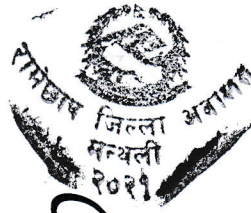 रामेछाप जिल्ला अदालत
मन्थली
२०२१